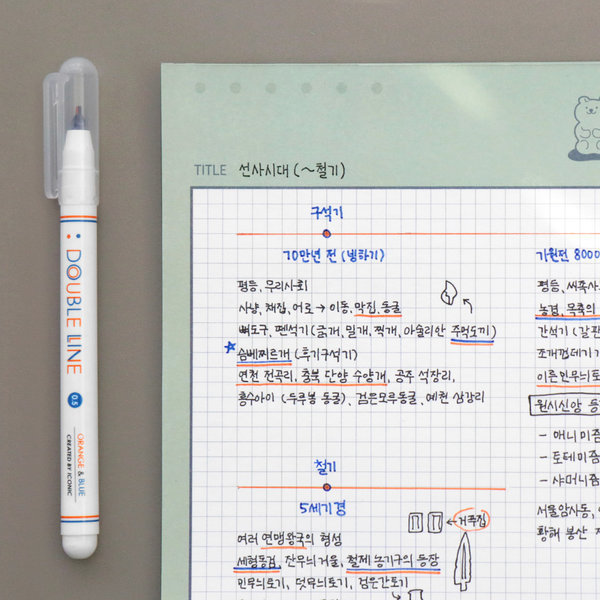 DOUBLE LINE
0.5
ORANGE & BLUE
CREATED BY ICONIC
TITLE 선사시대 (~철기)
구석기
70만년 전 (빙하기)
평등, 무리사회
사냥, 채집, 어로 → 이동, 막집, 동굴
뼈도구, 뗀석기 (긁개, 밀개, 찍개, 아슐리안 주먹도끼)
슴베찌르개 (후기구석기)
연천 전곡리, 충북 단양 수양개, 공주 석장리,
흥수아이 (두루봉 동굴), 검은모루동굴, 예천 삼강리
철기
5세기경
←거주집
여러 연맹왕국의 형성
세형동검, 잔무늬거울, 철제 농기구의 등장
민무늬토기, 덧무늬토기, 검은간토기
기원전 8000
평등, 씨족사
농경, 목축의
간석기 (갈판
조개껍데기 가
이른민무늬토
원시신앙 등
- 애니미즘
- 토테미즘
- 샤머니즘
서울 암사동,
황해 봉산 지